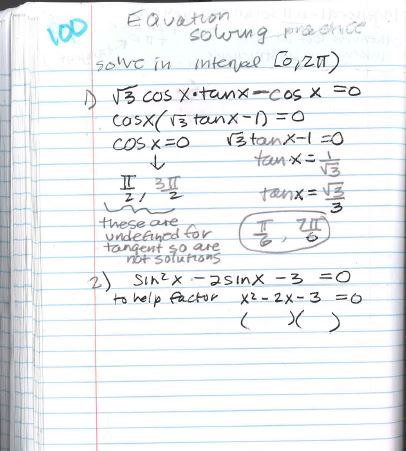 100
Equation
solving practice
solve in interval [0, 2π)
1) √3 cos x • tan x − cos x = 0
cos x (√3 tan x − 1) = 0
cos x = 0 √3 tan x − 1 = 0
↓ tan x = 1/√3
π/2, 3π/2 tan x = √3/3
these are
undefined for
tangent so are
not solutions
π/6, 7π/6
2) sin²x − 2sin x − 3 = 0
to help factor x² − 2x − 3 = 0
( )( )